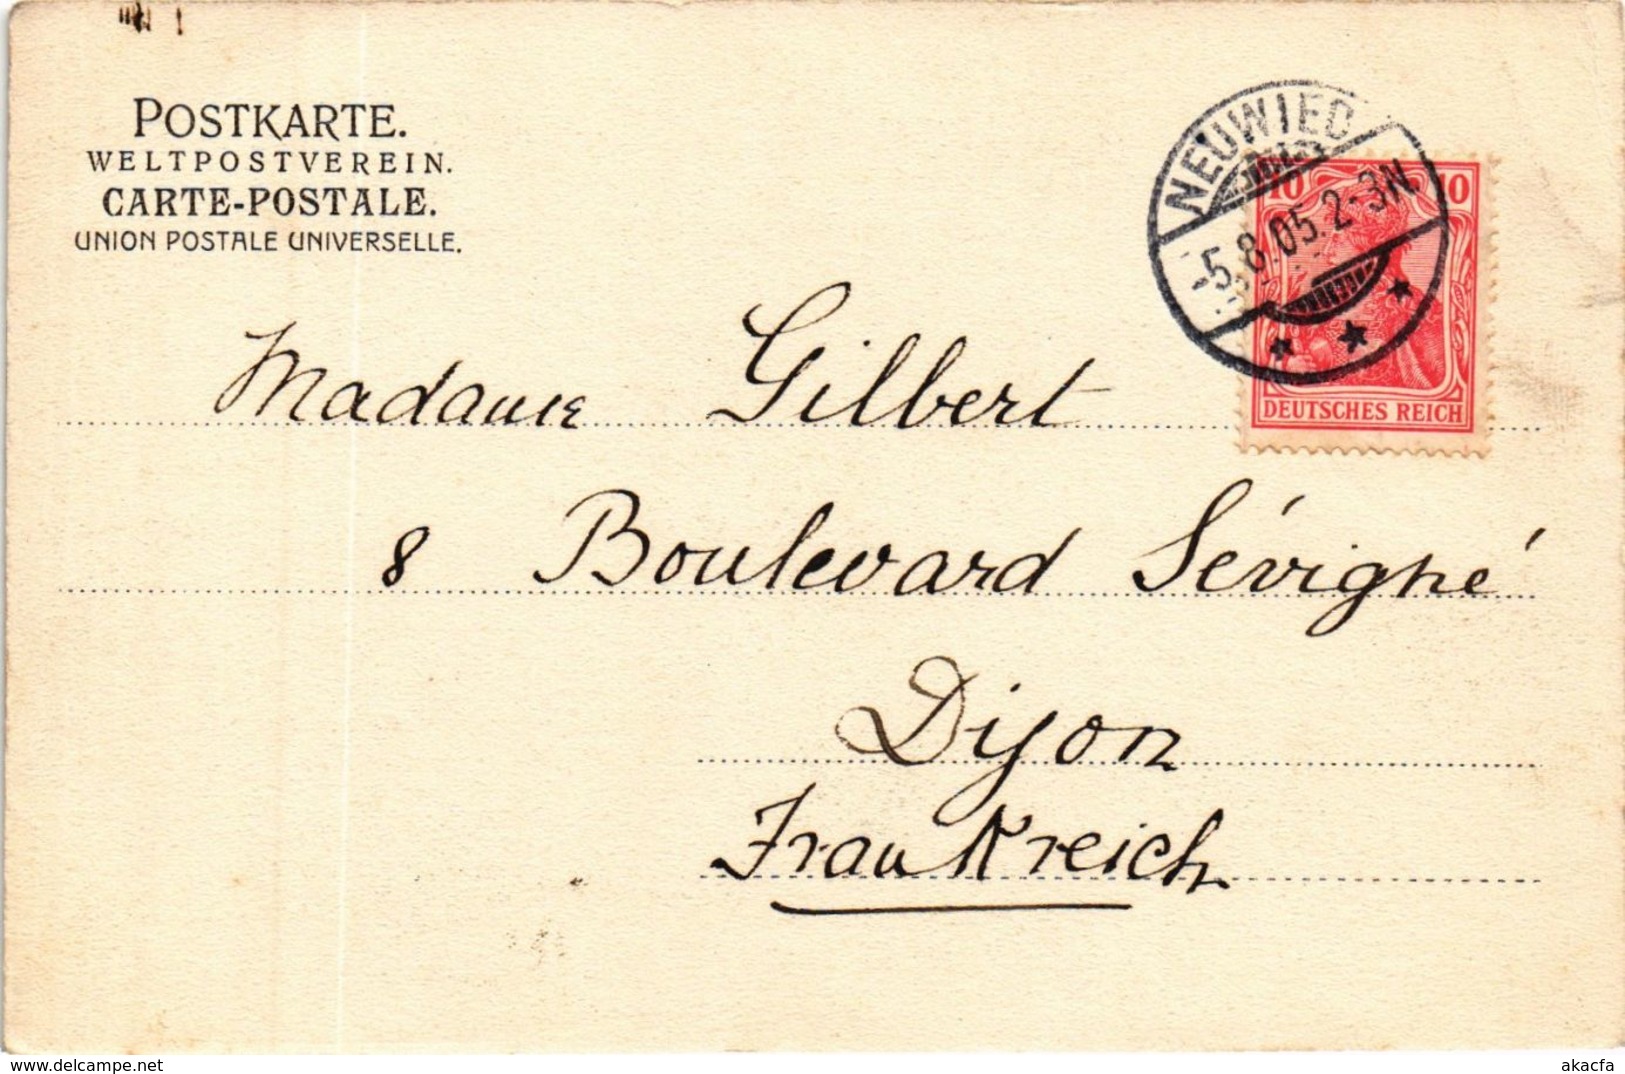 POSTKARTE.
WELTPOSTVEREIN.
CARTE-POSTALE.
UNION POSTALE UNIVERSELLE.
NEUWIED
-5.8.05.2-3N.
10 10
DEUTSCHES REICH
Madame Gilbert
8 Boulevard Sévigné
Dijon
Frankreich
www.delcampe.net
akacfa